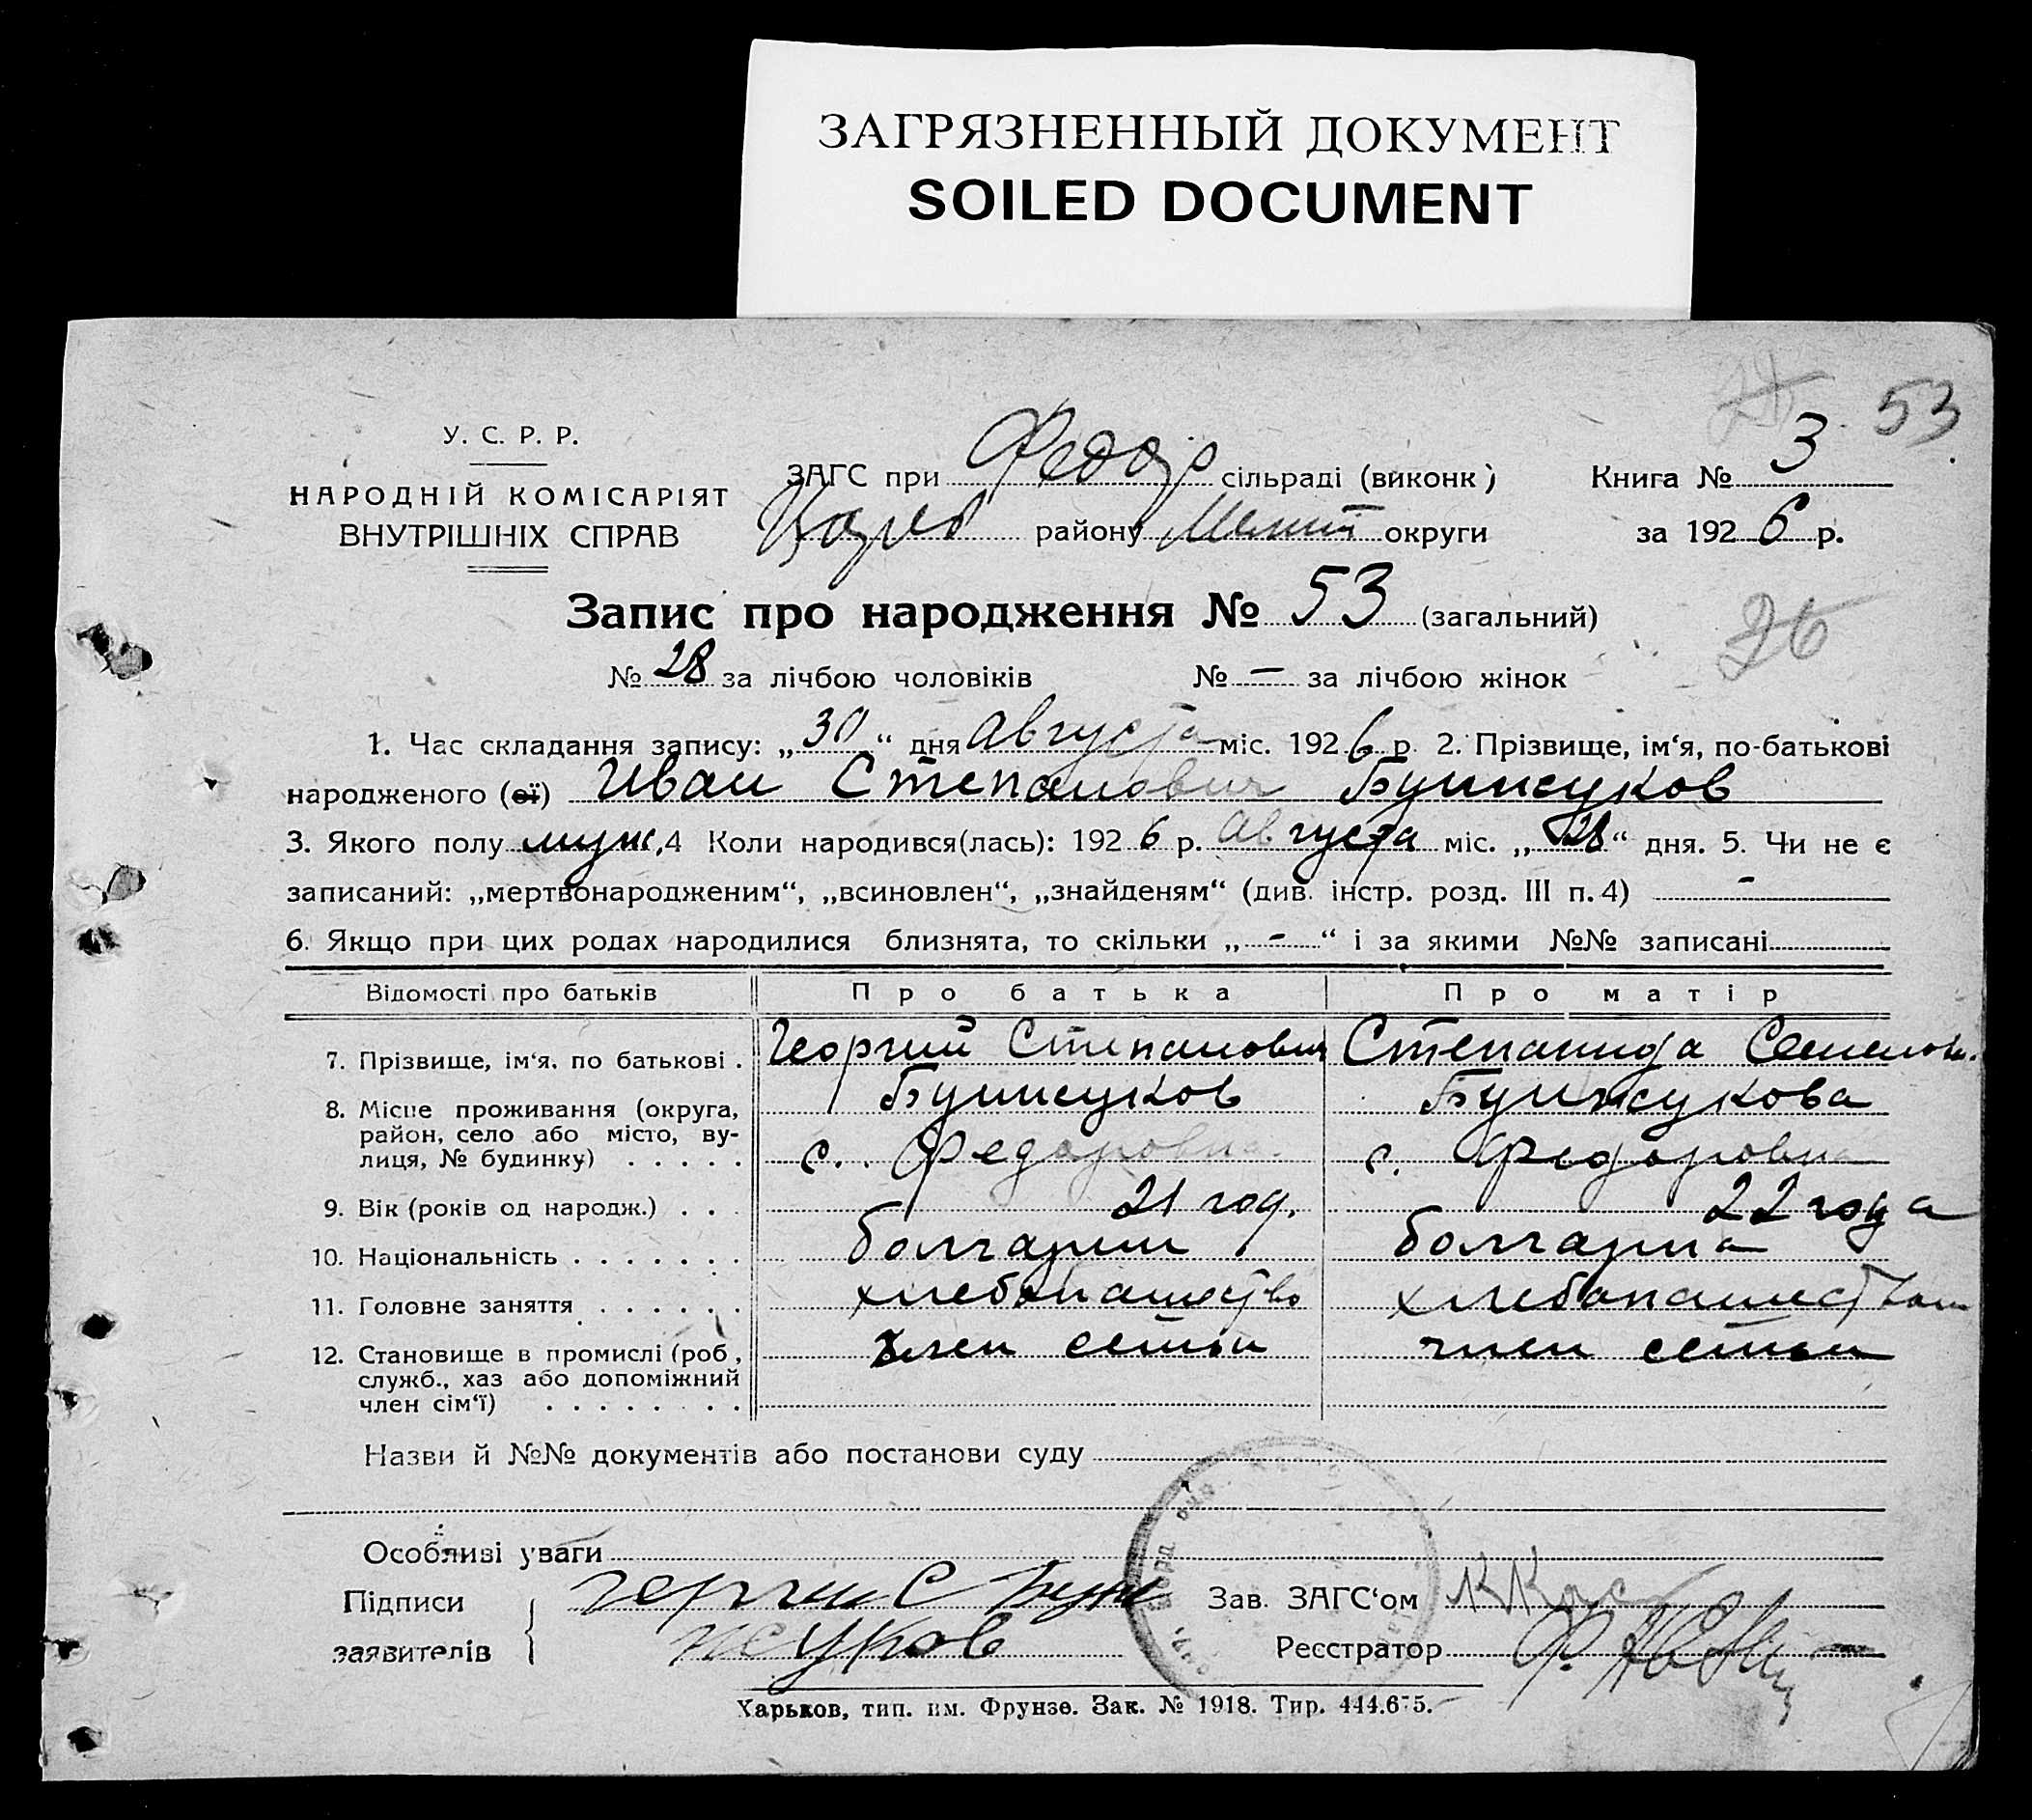 ЗАГРЯЗНЕННЫЙ ДОКУМЕНТ
SOILED DOCUMENT
53
У. С. Р. Р.
НАРОДНІЙ КОМІСАРІЯТ
ВНУТРІШНІХ СПРАВ
ЗАГС при Федор сільраді (виконк) Книга № 3
району Мелит округи за 1926 р.
Запис про народження № 53 (загальний)
26
№ 28 за лічбою чоловіків № — за лічбою жінок
1. Час складання запису: „30“ дня Августа міс. 1926 р. 2. Прізвище, ім‘я, по-батькові
народженого (ої) Иван Степанович Бунжуков
3. Якого полу муж. 4 Коли народився(лась): 1926 р. Августа міс. „28“ дня. 5. Чи не є
записаний: „мертвонародженим“, „всиновлен“, „знайденям“ (див. інстр. розд. III п. 4) -
6. Якщо при цих родах народилися близнята, то скільки „-“ і за якими №№ записані
Відомості про батьків Про батька Про матір
7. Прізвище, ім‘я, по батькові . Георгий Степанович Степанида Семенов.
Бунжуков Бунжукова
8. Місце проживання (округа,
район, село або місто, ву-
лиця, № будинку) . . . . . с. Федоровка с. Федоровка
9. Вік (років од народж.) . . . 21 год. 22 года
10. Національність . . . . . . . болгарин болгарка
11. Головне заняття . . . . . . хлебопашество хлебопашеством
12. Становище в промислі (роб, член семьи член семьи
служб., хаз або допоміжний
член сім‘ї) . . . . . . . .
Назви й №№ документів або постанови суду
Особливі уваги
Підписи заявителів Георгий С Бун
жуков
Зав. ЗАГС‘ом
Реєстратор
Харьков, тип. им. Фрунзе. Зак. № 1918. Тир. 444.675.